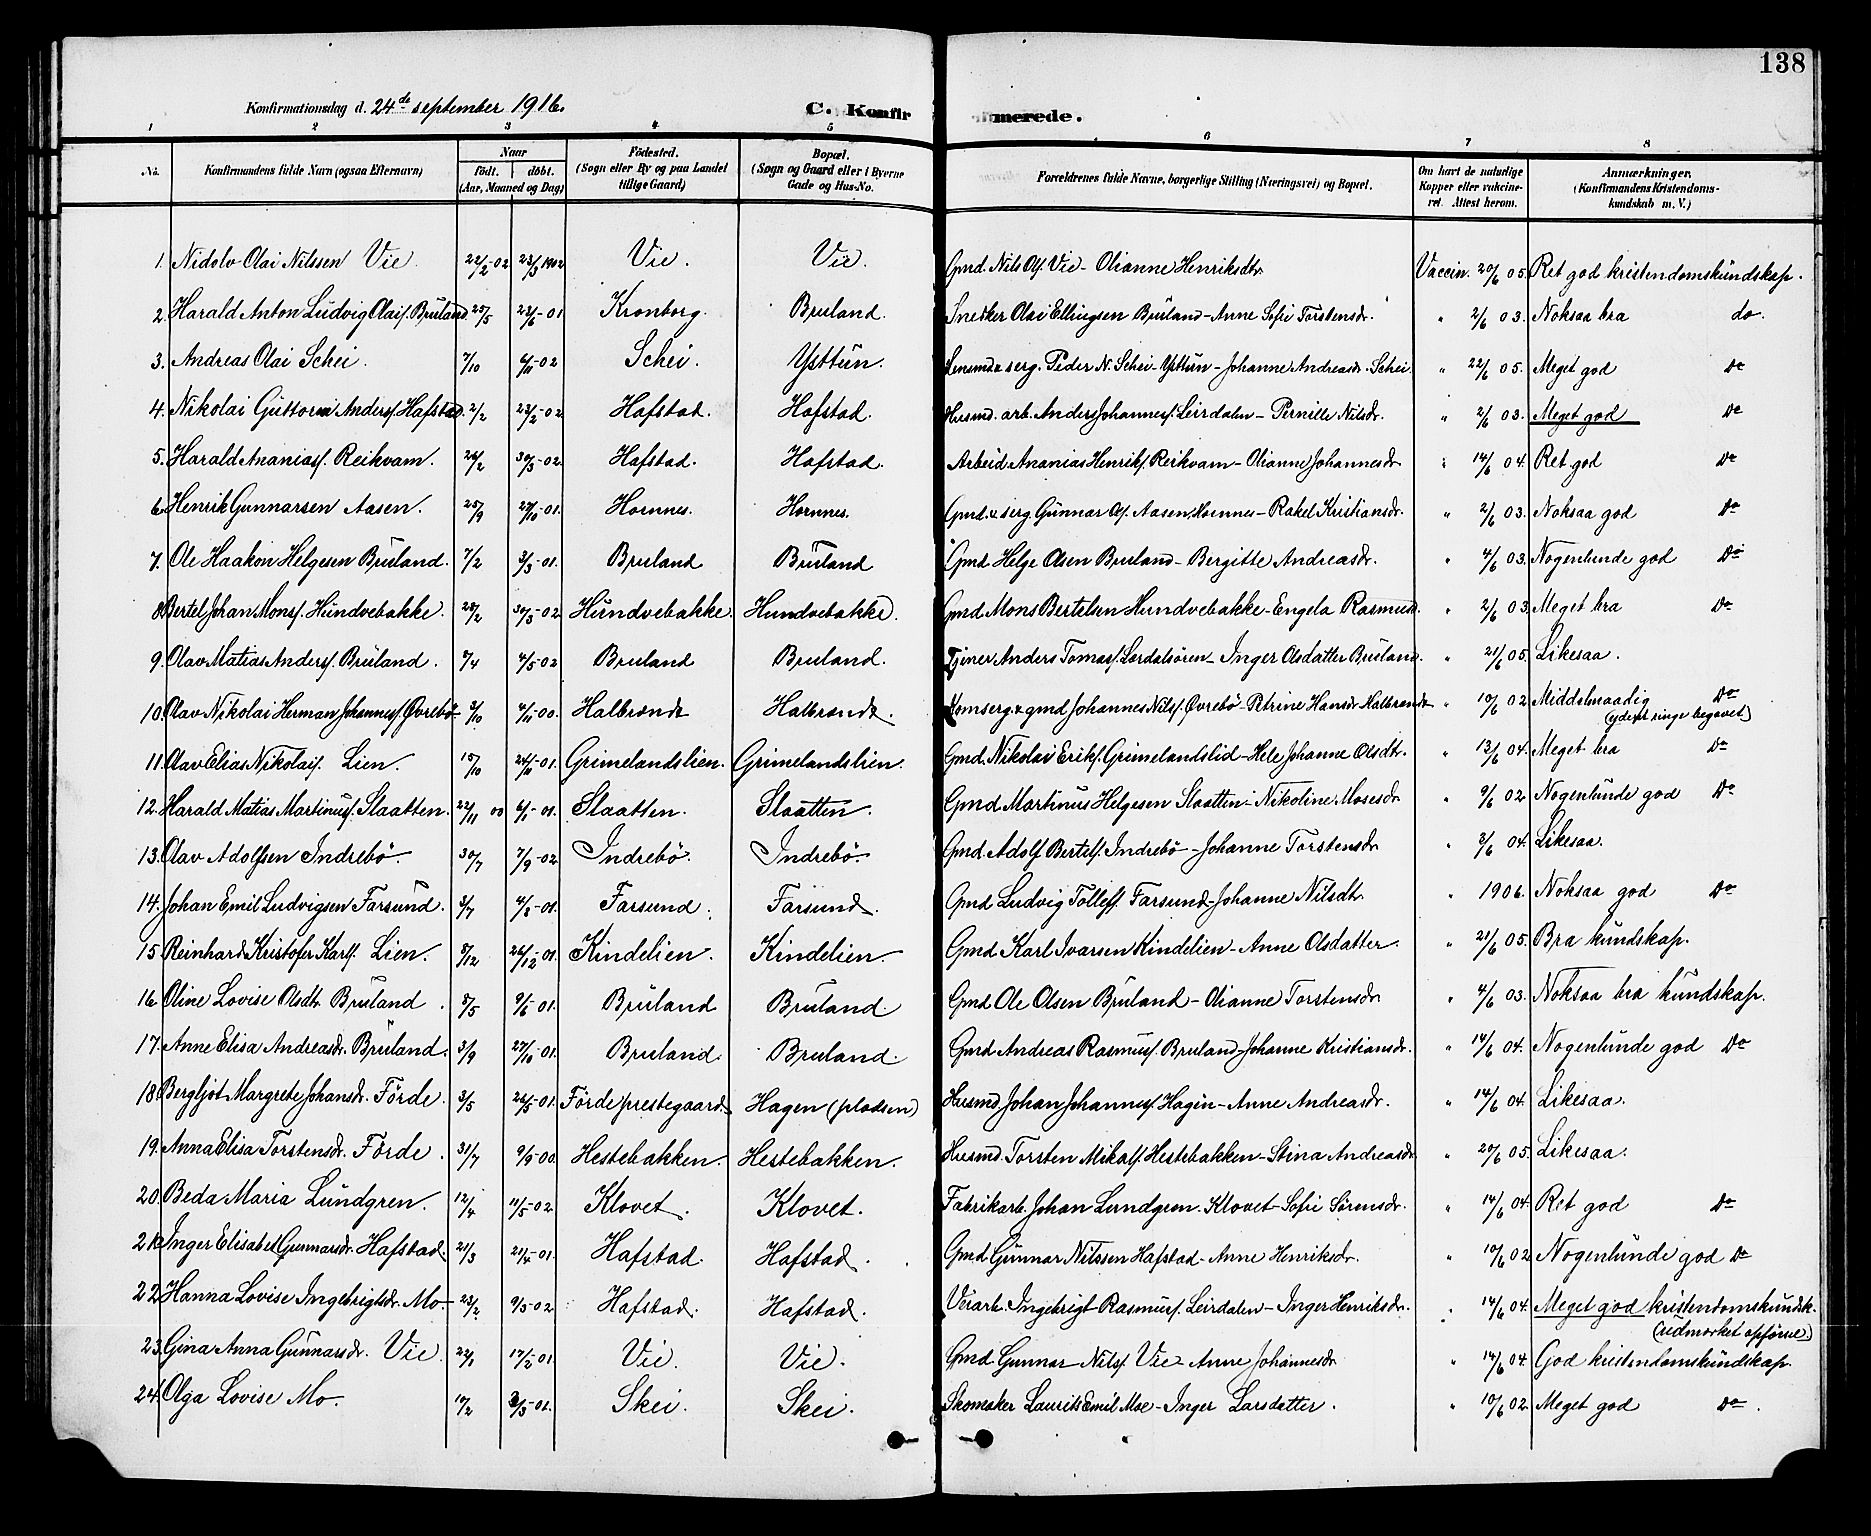 138
Konfirmationsdag d. 24de september 1916.
C. Konfirmerede.
1 2 3 4 5 6 7 8
No. Konfirmandens fulde Navn (ogsaa Efternavn) Naar født. døbt. (Aar, Maaned og Dag) Fødested. (Sogn eller By og paa Landet tillige Gaard) Bopæl. (Sogn og Gaard eller i Byerne Gade og Hus-No. Forældrenes fulde Navne, borgerlige Stilling (Næringsvei) og Bopæl. Om havt de naturlige Kopper eller vakcineret. Attest herom. Anmærkninger. (Konfirmandens Kristendomskundskab m. V.)
1. Nidolv Olai Nilssen Vie 22/2-02 23/3 1902 Vie. Vie. Gmd. Nils Ol. Vie - Olianne Henriksdtr Vaccin. 20/6 05. Ret god kristendomskundskap.
2. Harald Anton Ludvig Olais. Bruland 25/5 23/6-01 Kronborg. Bruland. Snedker Olai Ellingsen Bruland - Anne Sofie Torstensdr. " 2/6 03. Noksaa bra do.
3. Andreas Olai Schei. 7/10 6/11-02 Schei. Ysttun. Lensmd & serg. Peder N. Schei - Ysttun - Johanne Andreasdr. Schei. " 22/6 05. Meget god Do
4. Nikolai Guttorm Anders. Hafstad. 2/2 23/2-02 Hafstad. Hafstad. Husmd. arb. Anders Johannes. Leirdalen - Pernille Nilsdr. " 2/6 03. Meget god Do
5. Harald Ananias. Reikvam. 24/2 30/3-02 Hafstad. Hafstad. Arbeid Ananias Henriks. Reikvam - Olianne Johannesdr " 14/6 04. Ret god Do
6. Henrik Gunnarsen Aasen. 25/9 27/10-01. Hornnes. Hornnes. Gmd. & serg Gunnar Ols. Aasen, Hornnes - Rakel Kristiansdr. " 2/6 03. Noksaa god Do
7. Ole Haakon Helgesen Bruland. 7/2 3/3-01. Bruland Bruland Gmd Helge Olsen Bruland - Bergitte Andreasdr. " 4/6 03. Nogenlunde god Do
8. Bertel Johan Mons. Hundvebakke. 28/2 30/3-02 Hundvebakke. Hundvebakke. Gmd Mons Bertelsen Hundvebakke - Engela Rasmusd. " 2/6 03. Meget bra Do
9. Olav Matias Anders. Bruland. 7/4 4/5-02 Bruland Bruland. Tjener Anders Tomas. Lærdalsøren - Inger Olsdatter Bruland. " 21/6 05. Likesaa.
10. Olav Nikolai Herman Johannes. Øvrebø 3/10 4/11-00. Halbrendt Halbrendt. Komserg. & gmd Johannes Nils. Øvrebø - Petrine Hansdr Halbrendt " 10/6 02 Middelmaadig Do
(yderst ringe begavet)
11. Olav Elias Nikolais. Lien. 15/10 24/11-01. Grimelandslien. Grimelandslien. Gmd. Nikolai Eriks. Grimelandslid - Hele Johanne Olsdtr. " 13/6 04. Meget bra Do
12. Harald Matias Martinus. Slaatten. 22/11 00 6/1-01. Slaatten. Slaatten. Gmd Martinus Helgesen Slaatten - Nikoline Mosesdr " 9/6 02. Nogenlunde god Do
13. Olav Adolfsen Indrebø. 30/7 7/9-02. Indrebø. Indrebø. Gmd. Adolf Bertels. Indrebø - Johanne Torstensdr " 3/6 04. Likesaa.
14. Johan Emil Ludvigsen Farsund. 3/7 4/8-01. Farsund. Farsund. Gmd Ludvig Tollefs. Farsund - Johanne Nilsdtr. " 1906. Noksaa god Do
15 Reinhard Kristofer Karls. Lien. 8/12 26/12-01. Kindelien. Kindelien. Gmd Karl Ivarsen Kindelien - Anne Olsdatter. " 21/6 05. Bra kundskap.
16 Oline Lovise Olsdtr. Bruland. 8/5 9/6-01. Bruland Bruland. Gmd. Ole Olsen Bruland - Olianne Torstensdr " 4/6 03. Noksaa bra kundskap.
17. Anne Elisa Andreasdr. Bruland. 3/9 27/10-01. Bruland. Bruland. Gmd Andreas Rasmus. Bruland - Johanne Kristiansdr. " 14/6 04. Nogenlunde god Do
18 Bergljot Margrete Johansdr. Förde. 3/5 26/5-01. Förde prestegaard. Hagen (pladsen) Husmd Johan Johannes. Hagen - Anne Andreasdr. " 14/6 04. Likesaa.
19. Anna Elisa Torstensdr. Förde. 31/7 9/9-00. Hestebakken. Hestebakken. Husmd. Torsten Mikals. Hestebakken - Stina Andreasdr " 20/6 05. Likesaa.
20. Beda Maria Lundgren. 12/4 11/5-02. Klovet. Klovet. Fabrikarb. Johan Lundgren. Klovet - Sofie Sörensdr. " 14/6 04. Ret god Do
21. Inger Elisabet Gunnarsdr. Hafstad. 21/3 21/4-01. Hafstad. Hafstad. Gmd Gunnar Nilssen Hafstad - Anne Henriksdr. " 10/6 02. Nogenlunde god Do
22. Hanna Lovise Ingebrigtsdr. Mo. 23/2 9/3-02. Hafstad. Hafstad. Verarb. Ingebrigt Rasmus. Leirdalen - Inger Henriksdr. " 14/6 04. Meget god kristendomskundsk.
(udmerket opførsel)
23. Gina Anna Gunnarsdr. Vie. 22/1 17/2-01. Vie. Vie. Gmd. Gunnar Nils. Vie - Anne Johannesdr. " 14/6 04. God kristendomskundskap.
24. Olga Lovise Mo. 17/2 3/3-01. Skei. Skei. Skomaker Laurits Emil Moe - Inger Larsdatter. " 10/6 02. Meget god Do.